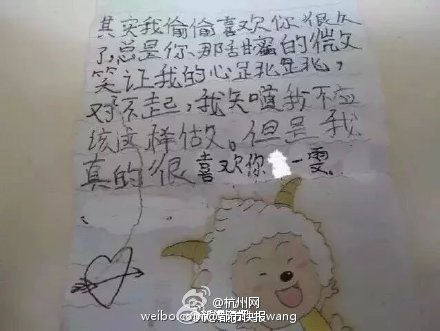 其实我偷偷喜欢你很久
了,总是你那甜蜜的微
笑让我的心
对不起,我知道我不应
该这样做。但是我
真的很喜欢你 一雯
杭州网